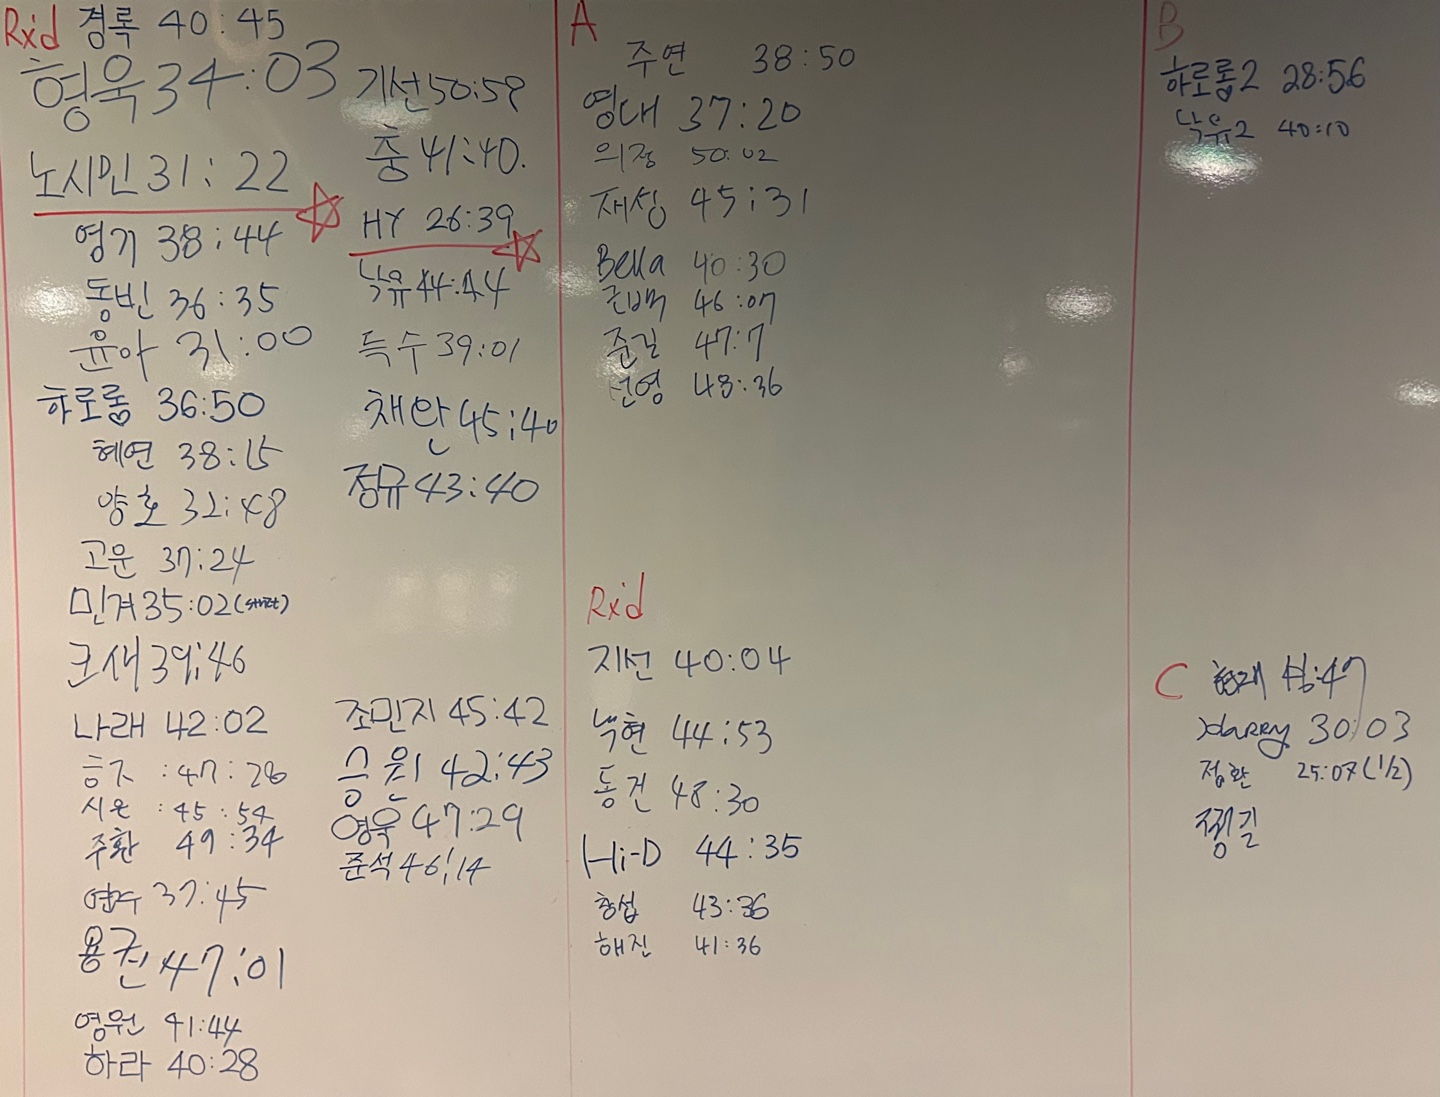 Rx'd 경록 40:45
형욱 34:03
노시민 31:22
영기 38:44
동빈 36:35
윤아 31:00
하로롬 36:50
혜연 38:15
양호 32:48
고운 37:24
민겨 35:02 (strict)
39:46
나래 42:02
:47:28
시온 :45:54
주환 49:34
연수 37:45
용권 47:01
영원 41:44
하라 40:28
기선 50:59
충 41:40.
HY 26:39
낙유 44:44
득수 39:01
채완 45:40
정규 43:40
조민지 45:42
승윤 42:43
영욱 47:29
준석 46:14
A
주연 38:50
영대 37:20
의정 50:02
재성 45:31
Bella 40:30
은백 46:07
준길 47:7
선영 48:36
Rx'd
지선 40:04
낙현 44:53
동건 48:30
Hi-D 44:35
창섭 43:36
해진 41:36
B
하로롬2 28:56
낙유2 40:10
C
Harry 30:03
정환 25:07 (1/2)
쩡길